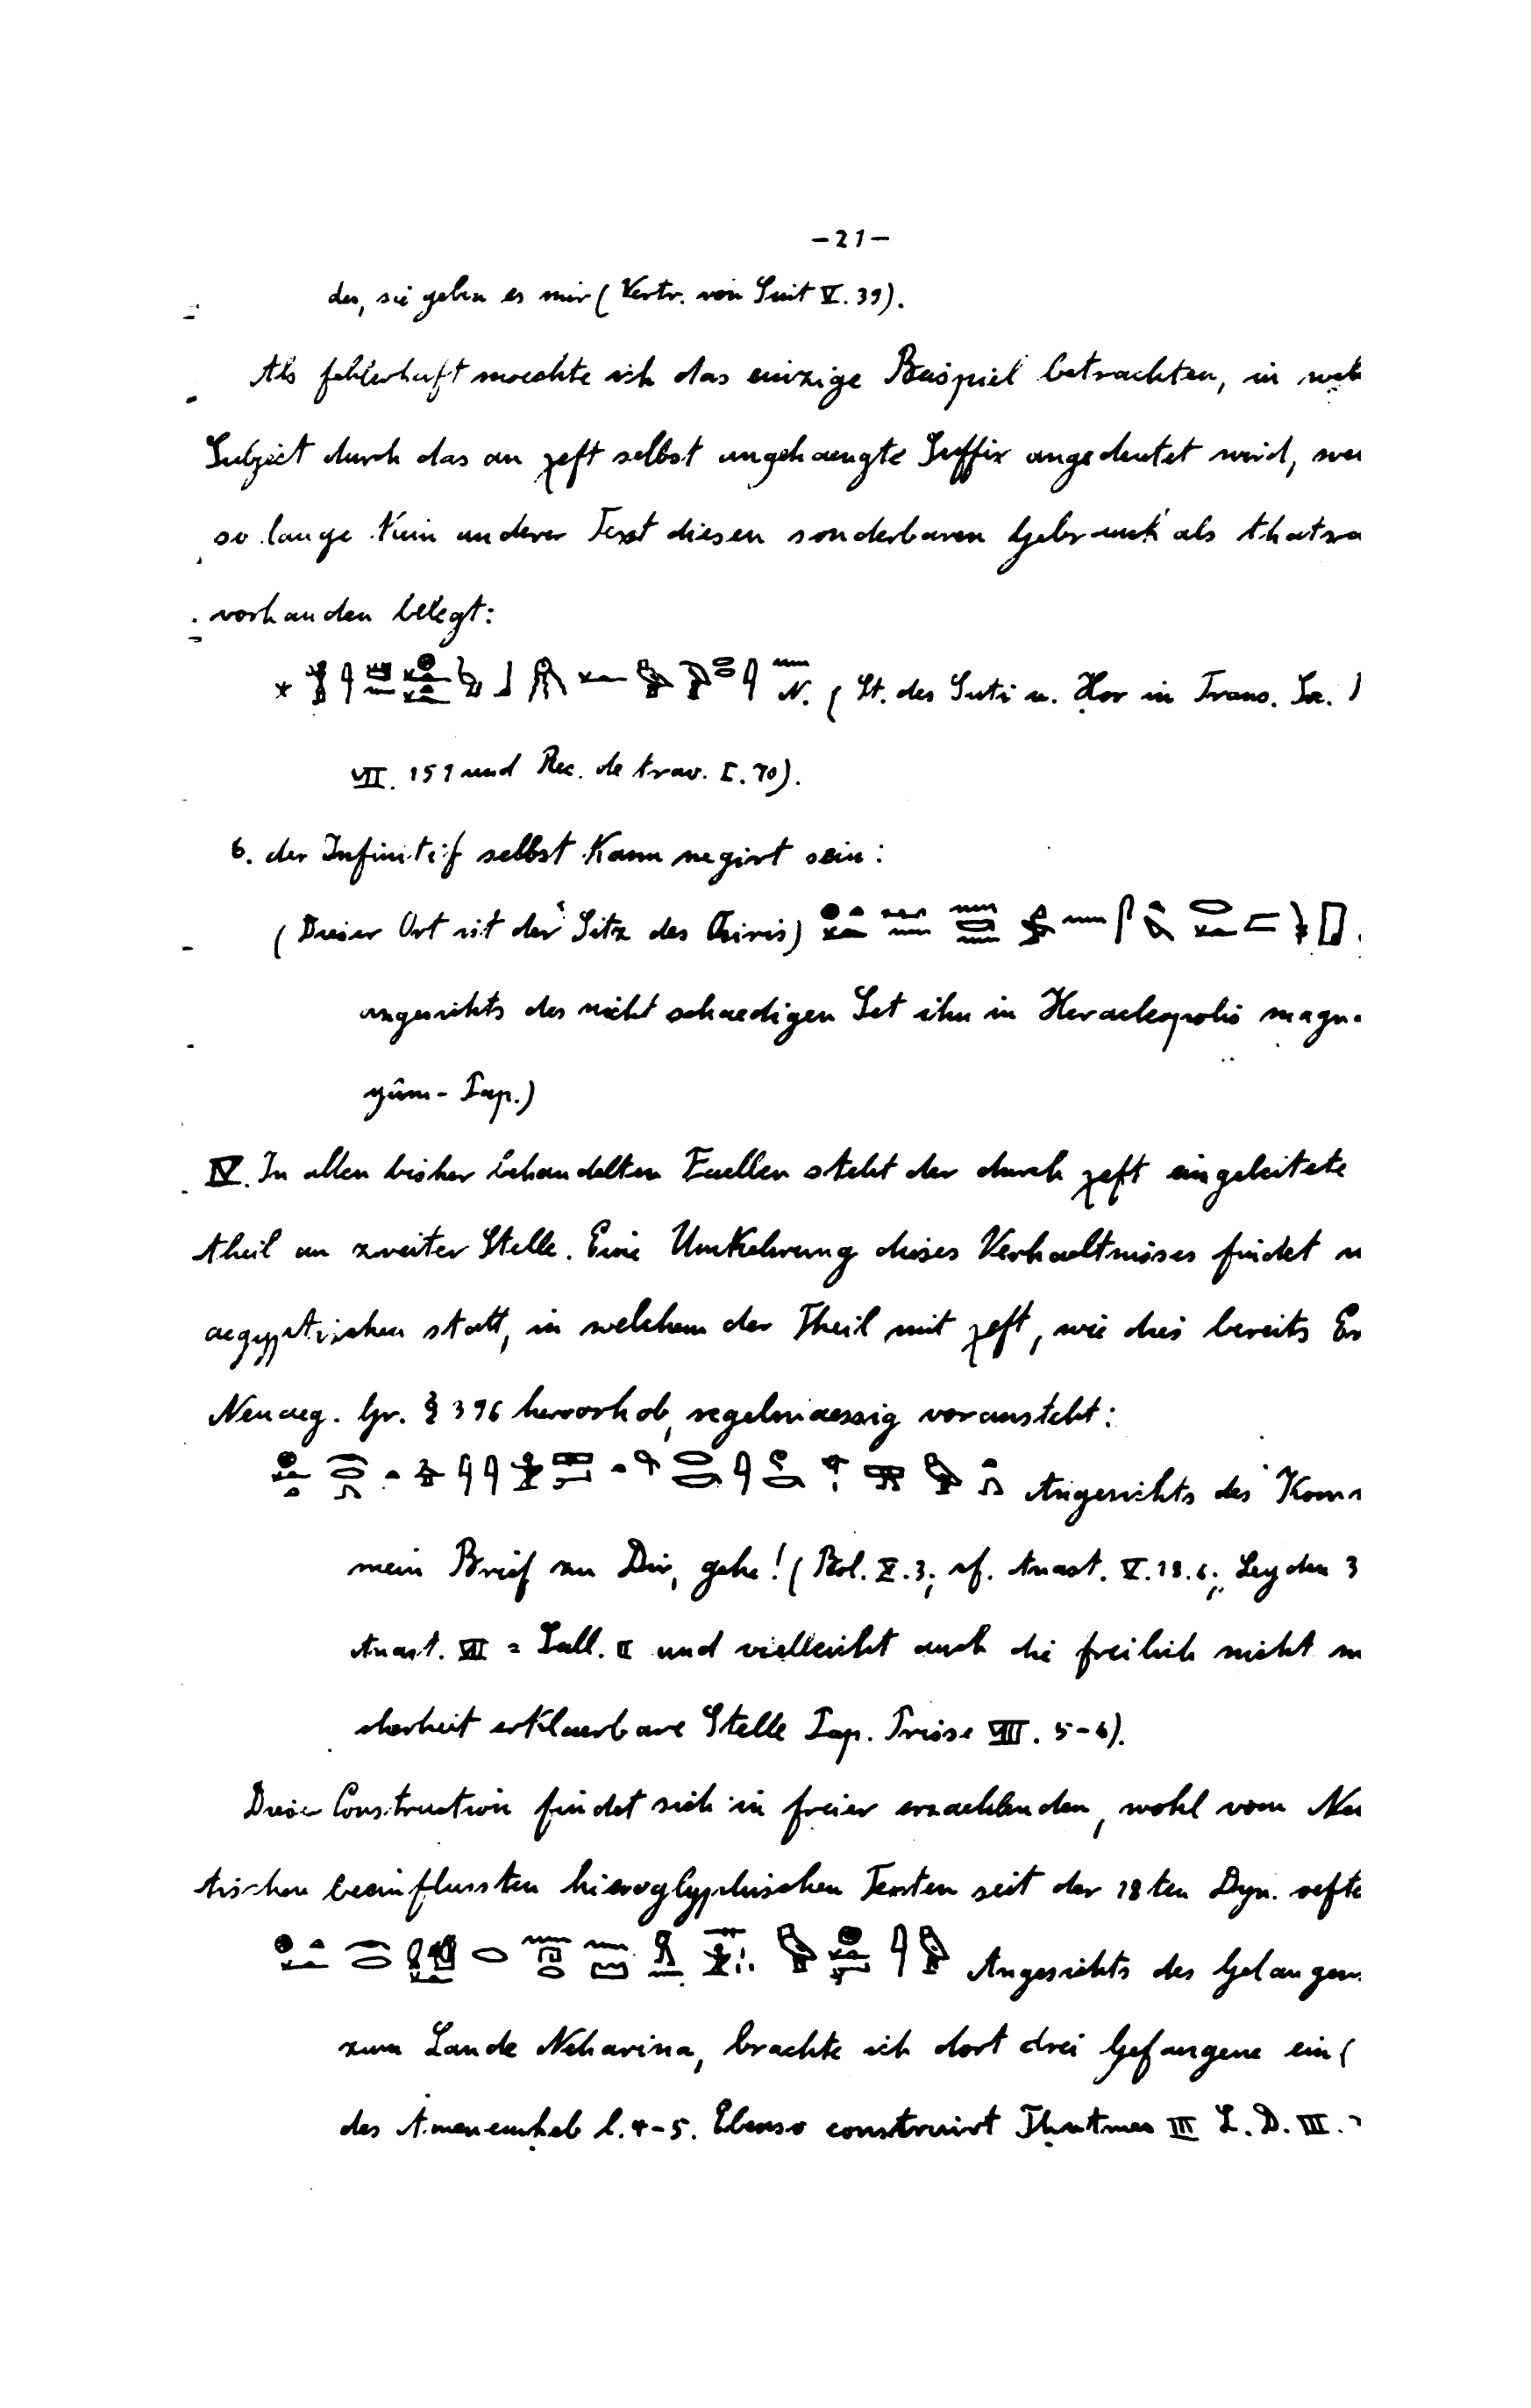 -21-
der, sie geben es mir (Vertr. von Siut V. 39).
Als fehlerhaft moechte ich das einzige Beispiel betrachten, in wel
Subject durch das an χeft selbst angehaengte Suffix angedeutet wird, we
so lange kein anderer Text diesen sonderbaren Gebrauch als thatsa
vorhanden belegt:
N. (St. des Suti u. Hor in Trans. Soc.
VII. 151 und Rec. de trav. I. 70).
6. der Infinitif selbst kann negirt sein:
(Dieser Ort ist der Sitz des Osiris)
angesichts des nicht schaedigen Set ihn in Heracleopolis magn
yûm-Pap.)
IV. In allen bisher behandelten Faellen steht der durch χeft eingeleitete
theil an zweiter Stelle. Eine Umkehrung dieses Verhaeltnisses findet
aegyptischen statt, in welchem der Theil mit χeft, wie dies bereits Er
Neuaeg. Gr. § 396 hervorhob, regelmaessig voransteht:
Angesichts des Kom
mein Brief zu Dir, gehe! (Bol. X. 3; cf. Anast. V. 18. 6; Leyden 3
Anast. VII = Sall. II und vielleicht auch die freilich nicht m
cherheit erklaerbare Stelle Pap. Prisse VIII. 5-6).
Diese Construction findet sich in freier erzaehlenden, wohl vom Neu
tischen beeinflussten hieroglyphischen Texten seit der 18ten Dyn. oefte
Angesichts des Gelangens
zum Lande Neharina, brachte ich dort drei Gefangene ein (
des Amenemheb l. 4-5. Ebenso construirt Thutmes III L. D. III.